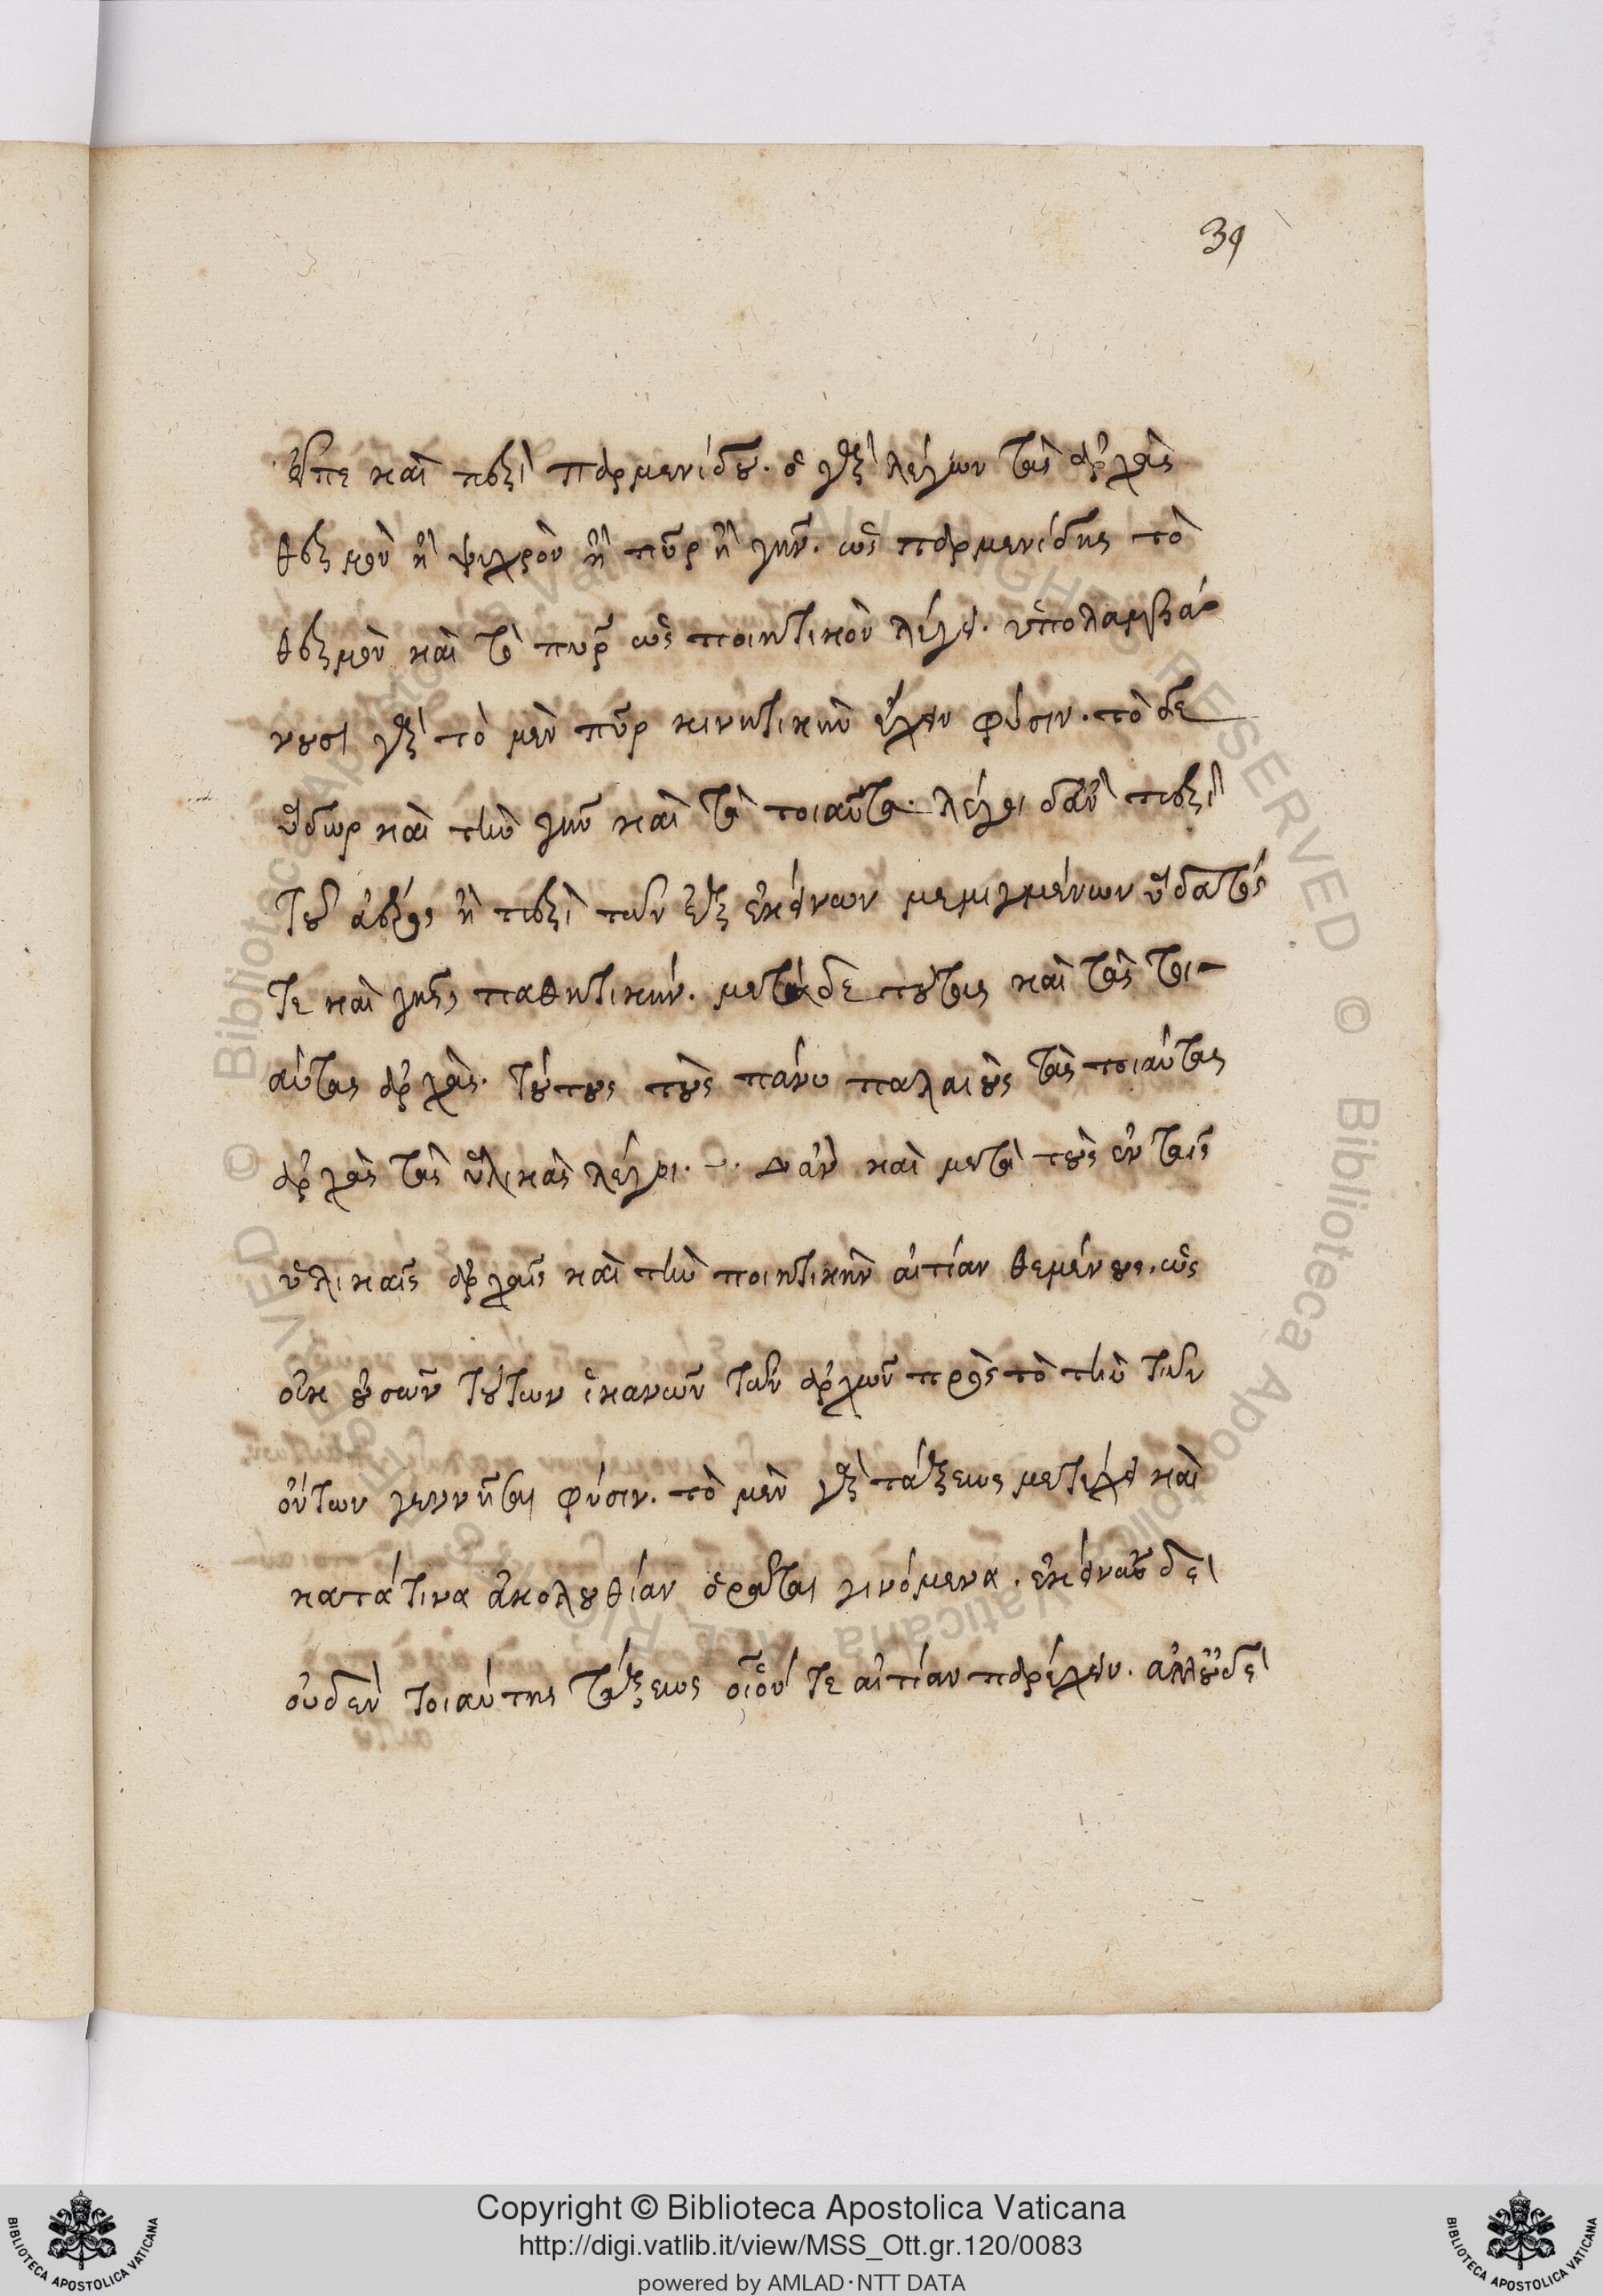 39
εἶπε καὶ περὶ παρμενίδου. ὁ γὰρ λέγων τὰς ἀρχὰς
θερμὸν ἢ ψυχρὸν ἢ πῦρ ἢ γῆν. ὡς παρμενίδης τὸ
θερμὸν καὶ τὸ πυρ ὡς ποιητικὸν λέγει. ὑπολαμβά
νουσι γὰρ τὸ μὲν πῦρ κινητικὴν ἔχειν φύσιν. τὸ δὲ
ὕδωρ καὶ τὴν γῆν καὶ τὰ τοιαῦτα. λέγοι δἂν περὶ
τοῦ ἀέρος ἢ περὶ τῶν ἐξ ἐκείνων μεμιγμένων ὕδατός
τε καὶ γῆς παθητικήν. μετὰ δὲ τούτους καὶ τὰς τοι-
αύτας ἀρχὰς. τούτους τοὺς πάνυ παλαιοὺς τὰς τοιαύτας
ἀρχὰς τὰς ὑλικὰς λέγοι. δἂν καὶ μετὰ τοὺς ἐν ταῖς
ὑλικαῖς ἀρχαῖς καὶ τὴν ποιητικὴν αἰτίαν θεμένους. ὡς
οὐκ οὐσῶν τούτων ἱκανῶν τῶν ἀρχῶν πρὸς τὸ τὴν τῶν
ὄντων γεννῆσαι φύσιν. τὸ μὲν γὰρ τάξεως μετέχει καὶ
κατά τινα ἀκολουθίαν ὁρᾶται γινόμενα. ἐκείνων δὲ
οὐδὲν τοιαύτης τάξεως οἷόν τε αἰτίαν παρέχειν. ἀλλ' οὐδὲ
Copyright © Biblioteca Apostolica Vaticana
http://digi.vatlib.it/view/MSS_Ott.gr.120/0083
powered by AMLAD·NTT DATA
BIBLIOTECA APOSTOLICA VATICANA
BIBLIOTECA APOSTOLICA VATICANA